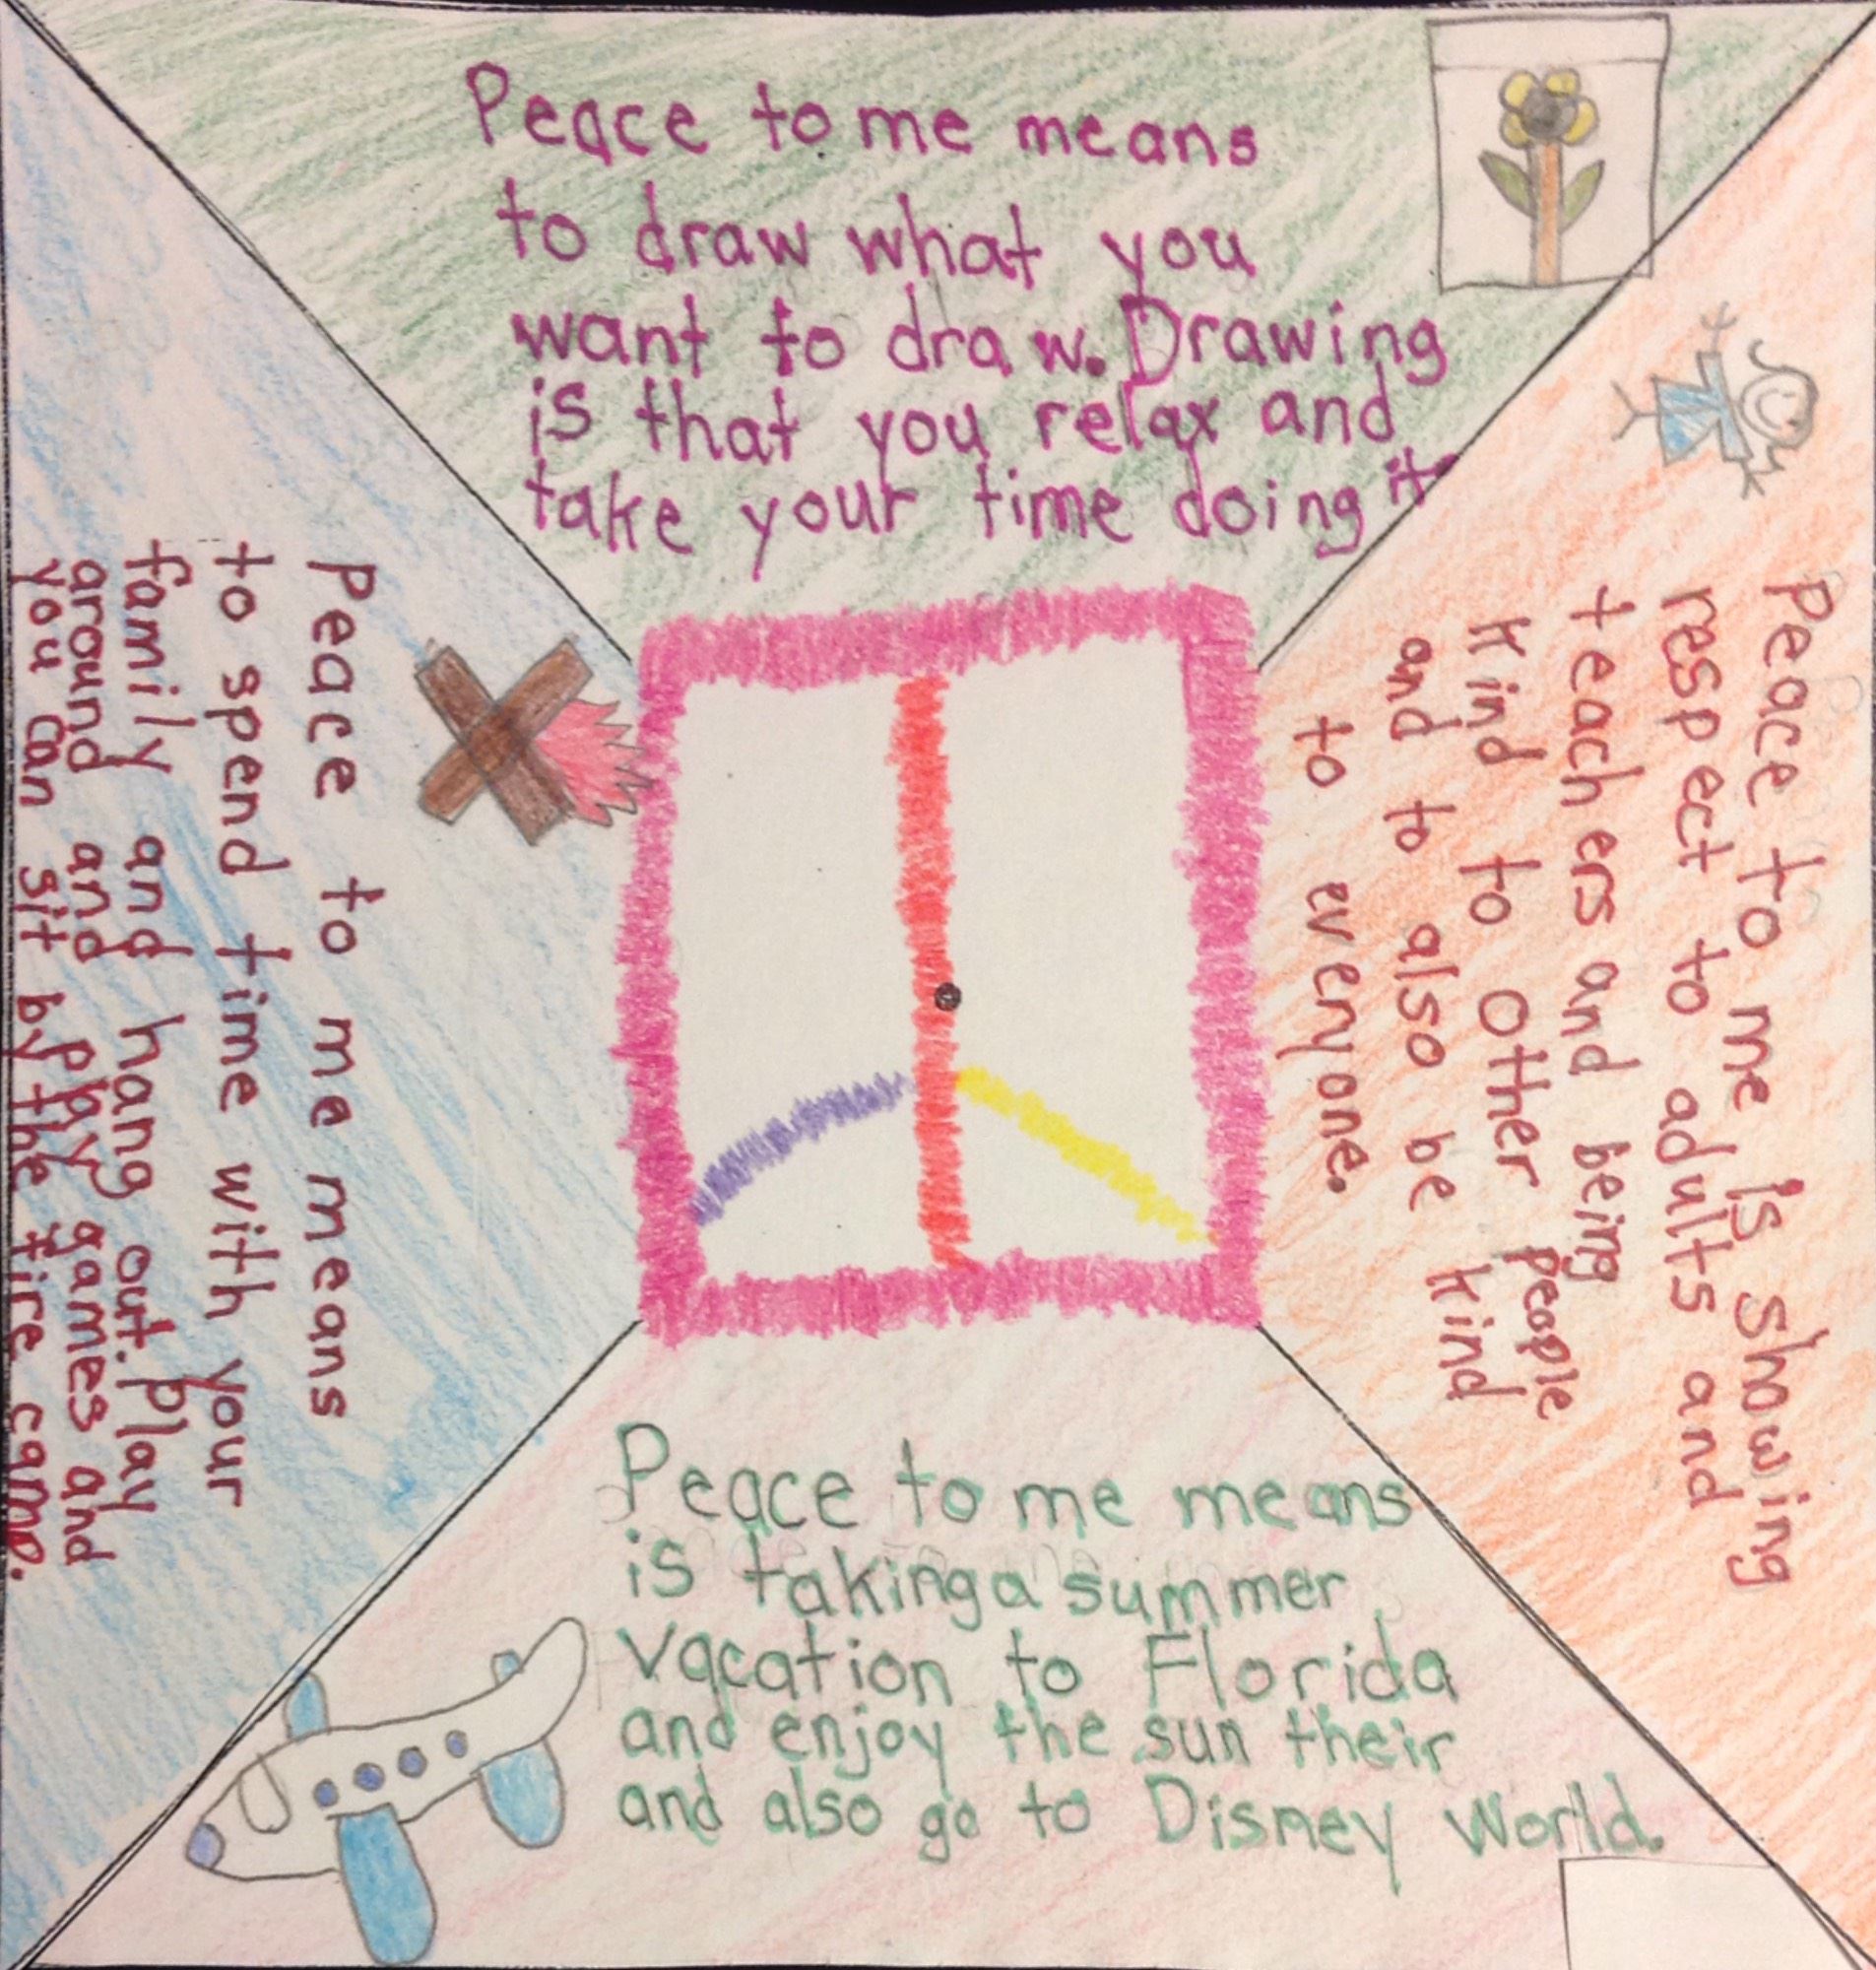 Peace to me means
to draw what you
want to draw. Drawing
is that you relax and
take your time doing it
Peace to me is showing
respect to adults and
teachers and being
kind to other people
and to also be kind
to everyone.
Peace to me means
is taking a summer
vacation to Florida
and enjoy the sun their
and also go to Disney World.
Peace to me means
to spend time with your
family and hang out. Play
around and play games and
you can sit by the fire camp.